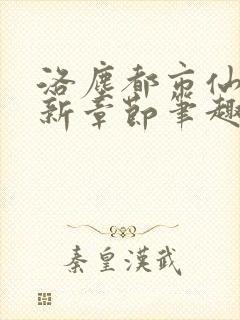 洛塵都市仙
新章節筆趣
秦皇漢武